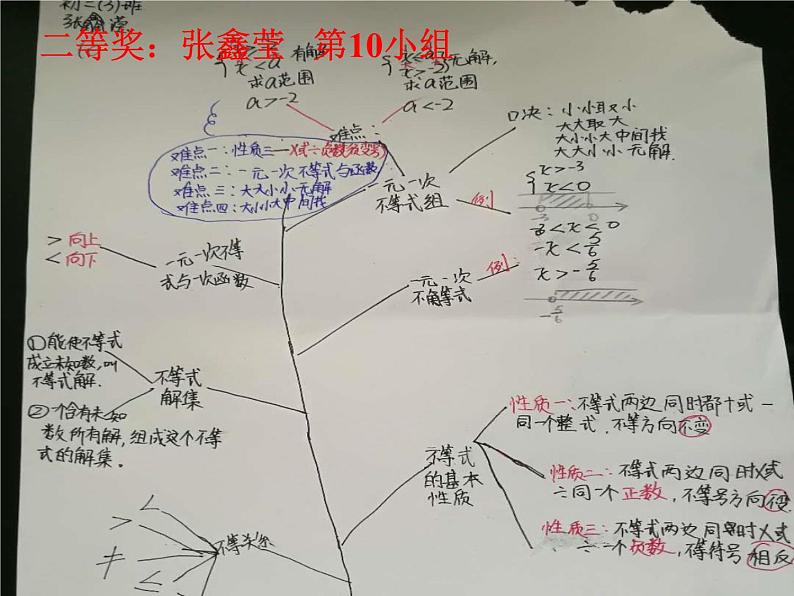 初二(3)班
张鑫滢
二等奖：张鑫莹 第10小组
有解
{ x<a
求a范围
a>-2
{ x<a
x>-2 无解,
求a范围
a<-2
难点：
难点一：性质三—X或÷负数改变号
难点二：一元一次不等式与函数
难点三：大大小小无解
难点四：大小小大中间找
一元一次
不等式组
口决：小小取小
大大取大
大小小大中间找
大大小小无解.
例
{ x>-3
x<0
-3 0
-3<x<0
一元一次
不等式
例：
-x<5/6
x>-5/6
-5/6
>向上
<向下
一元一次不等
式与一次函数
①能使不等式
成立未知数,叫
不等式解.
不等式
解集
②一个含有未知
数所有解,组成这个不等
式的解集。
不等式
的基本
性质
性质一：不等式两边同时都+或-
同一个整式,不等方向不变
性质二：不等式两边同时X或
÷同一个正数,不等号方向不变
性质三：不等式两边同时X或
÷一个负数,不等符号相反
不等关系
<
>
≠
≤